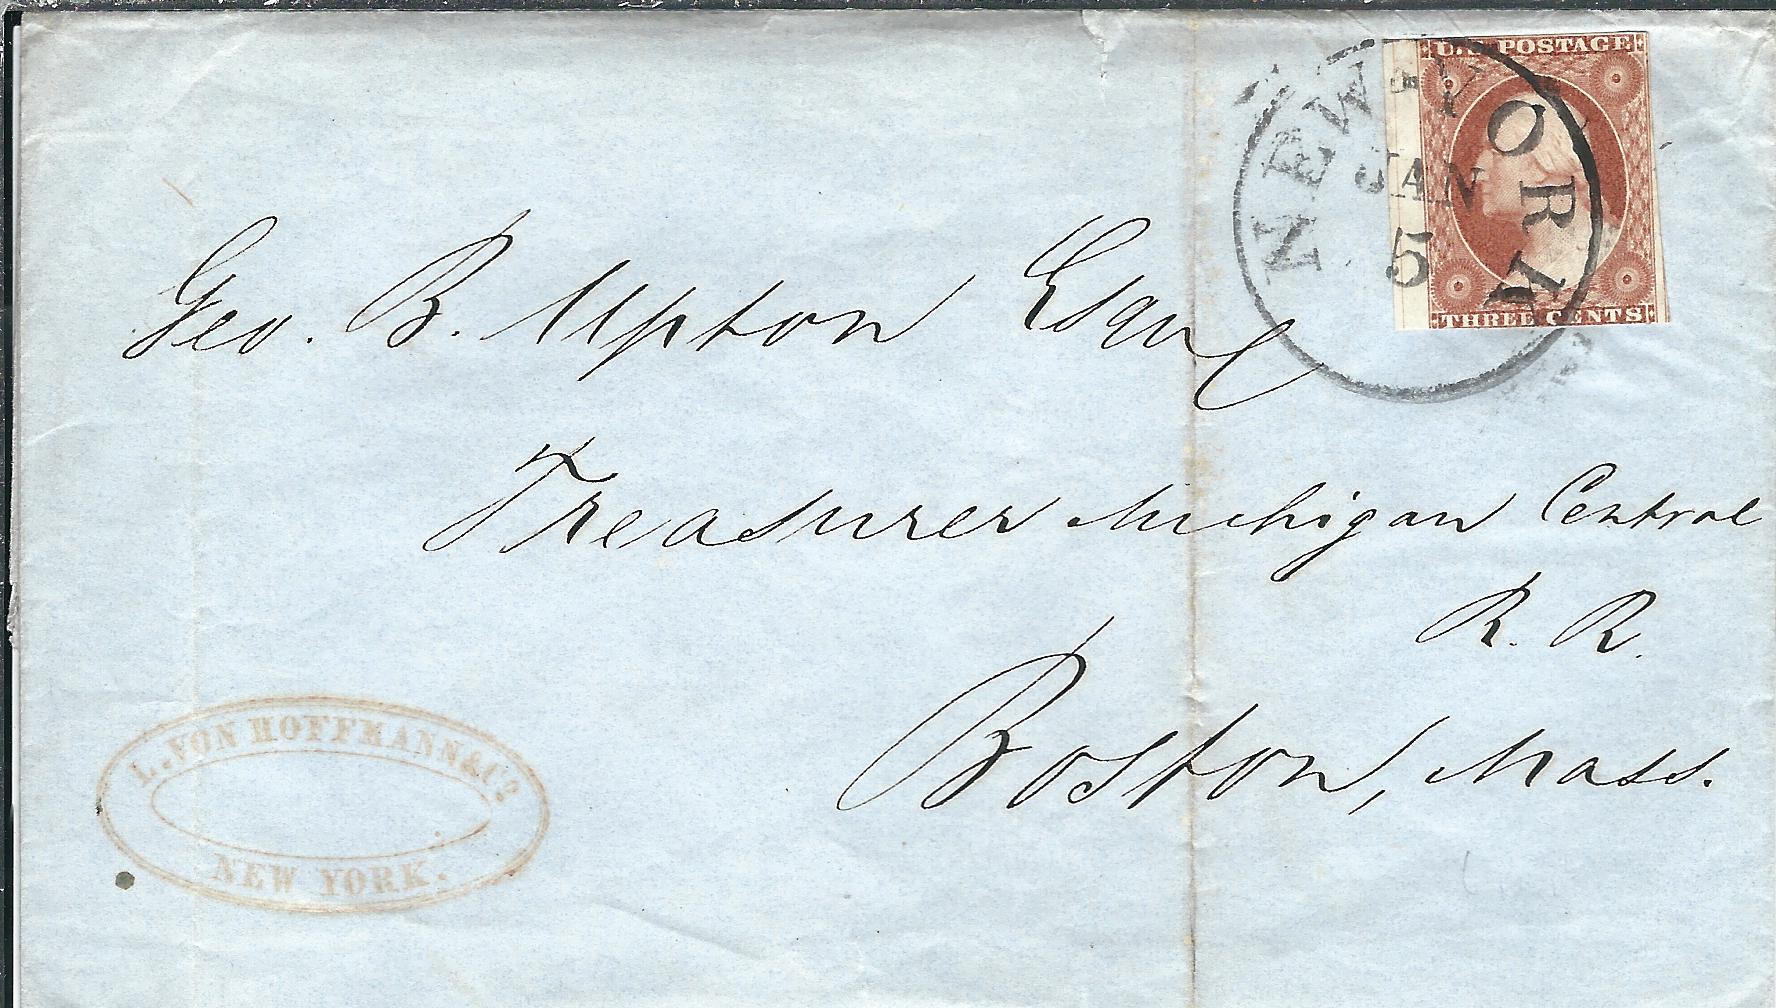 U.S. POSTAGE
THREE CENTS
NEW YORK
JAN
5
Geo. B. Upton Esqu
Treasurer Michigan Central
R. R.
Boston, Mass.
L. VON HOFFMANN & Co.
NEW YORK.